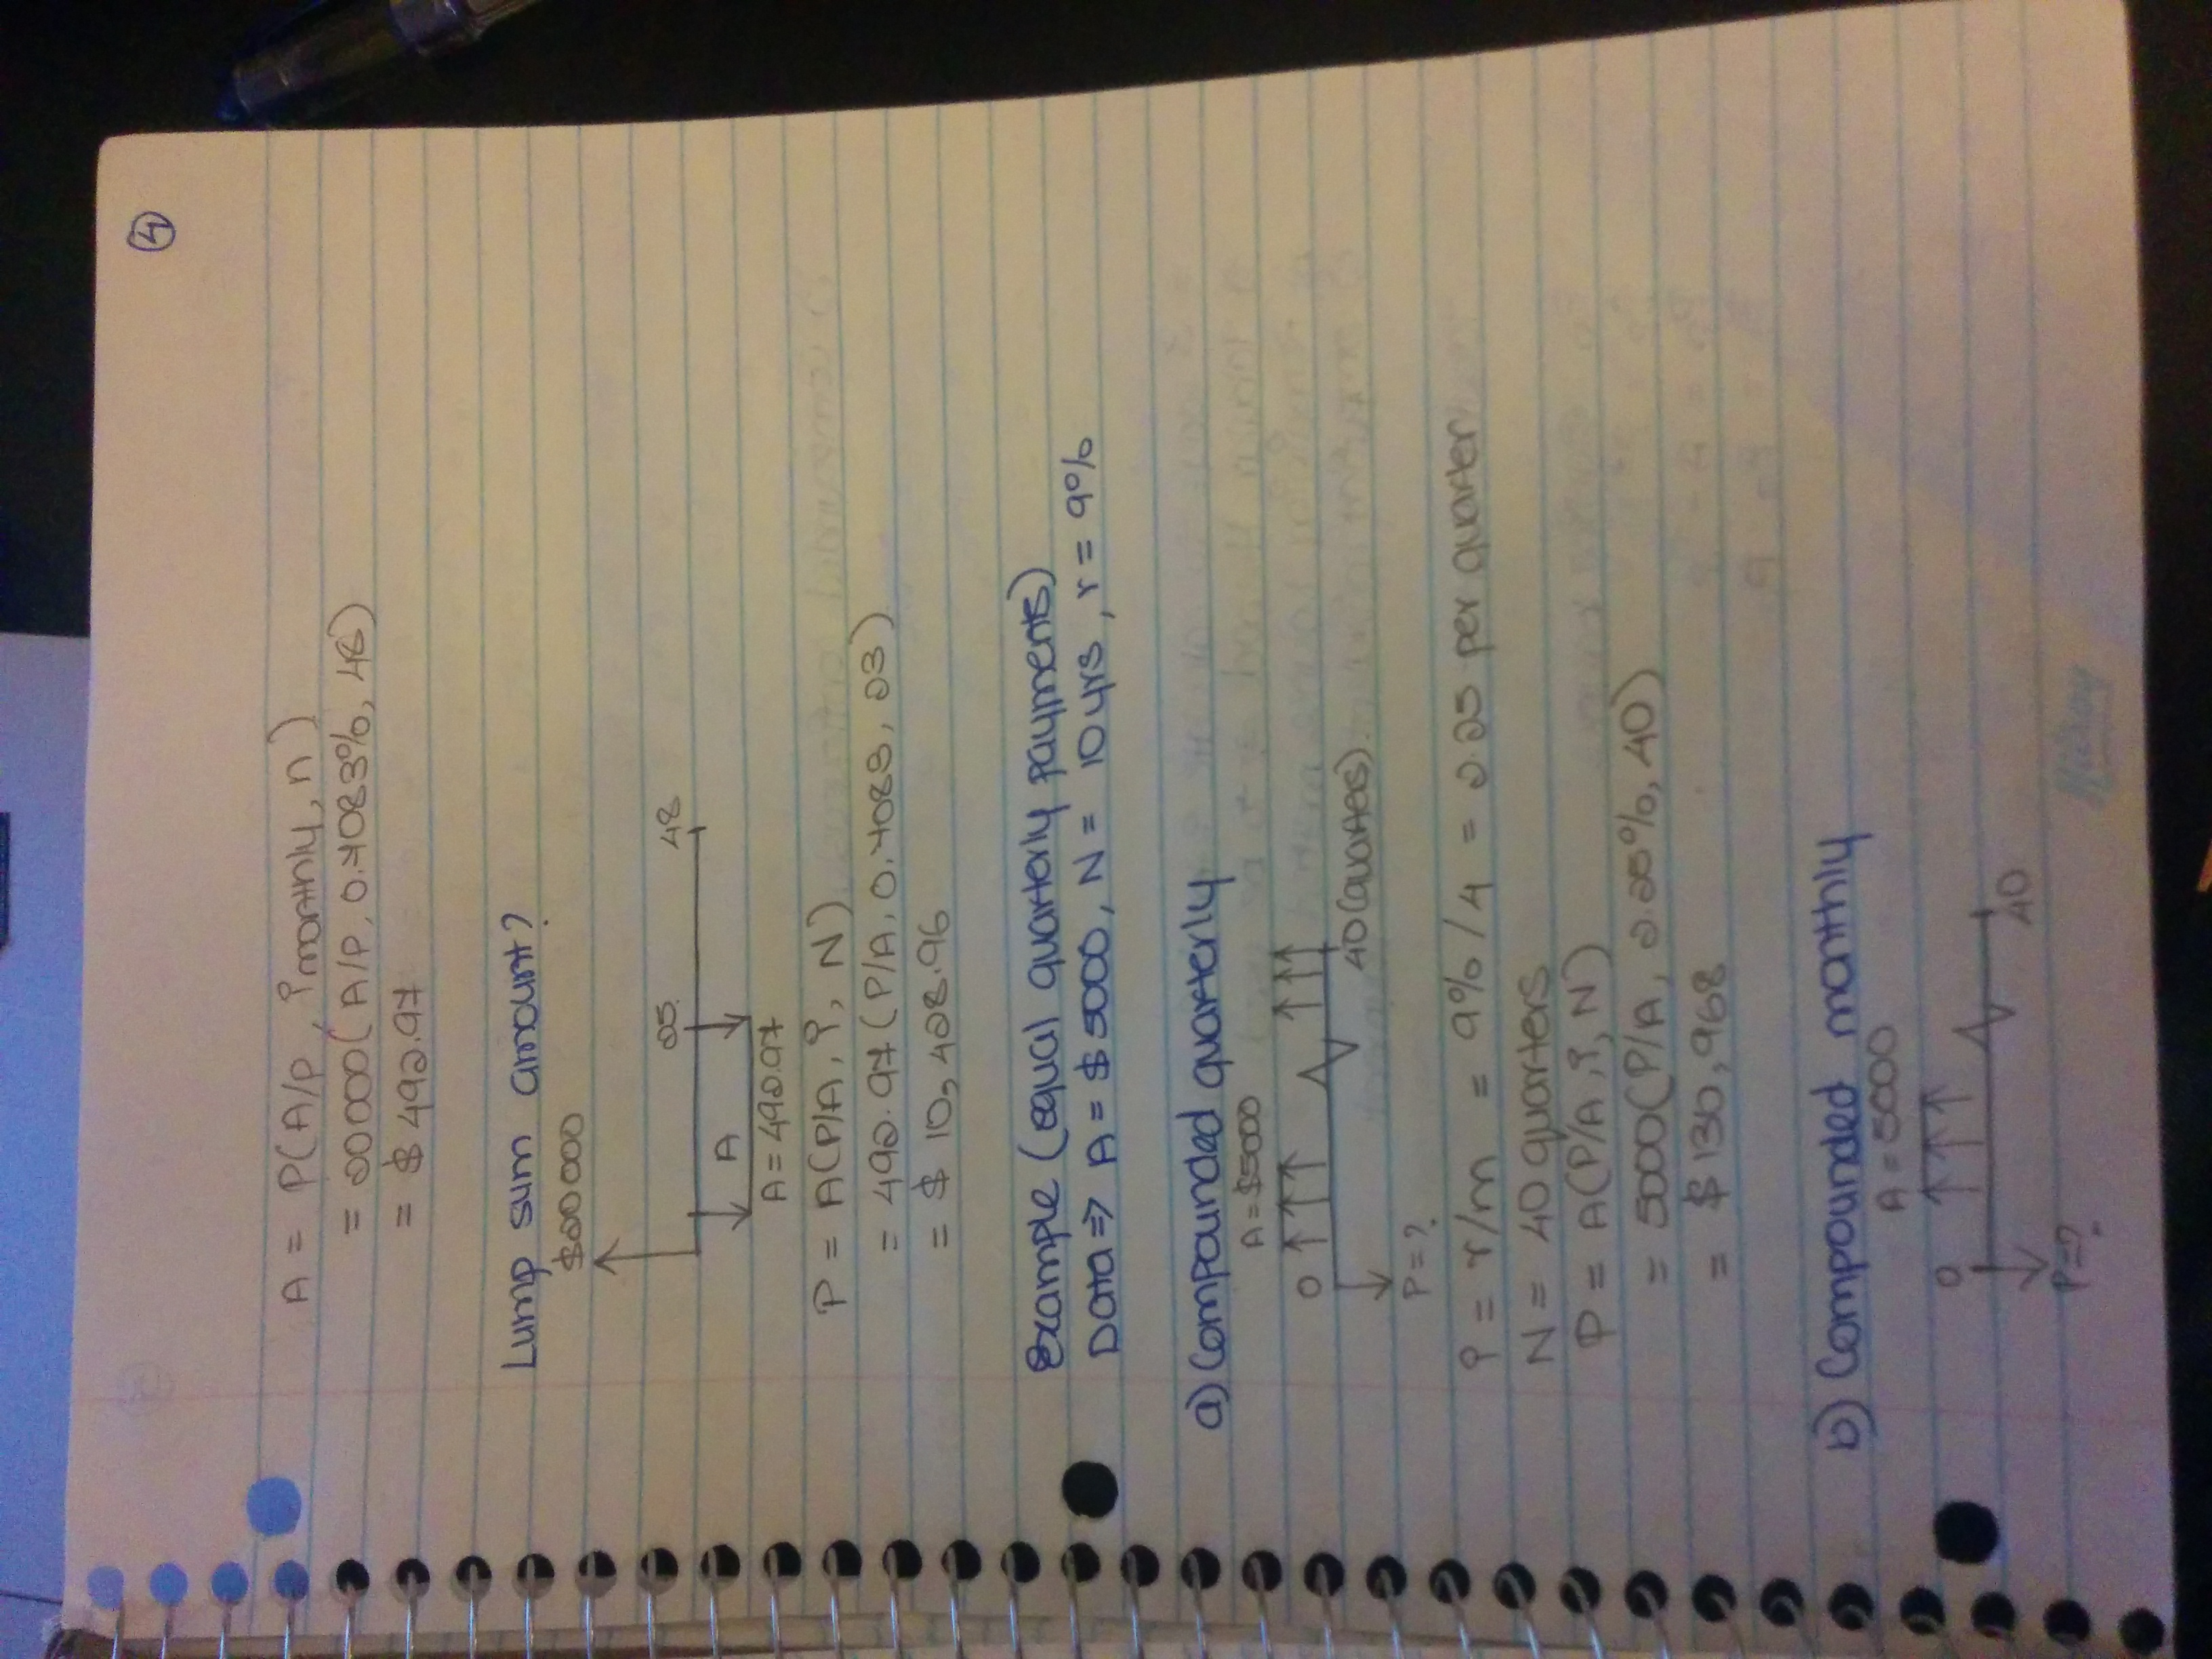 4
A = P(A/P, i monthly, n)
= 20000(A/P, 0.7083%, 48)
= $492.97
Lump sum amount?
$20000
25 48
A
A = 492.97
P = A(P/A, i, N)
= 492.97(P/A, 0.7083, 23)
= $10,428.96
Example (equal quarterly payments)
Data ⇒ A = $5000, N = 10 yrs, r = 9%
a) Compounded quarterly
A = $5000
0 40 (quarters)
P = ?
i = r/m = 9%/4 = 2.25 per quarter
N = 40 quarters
P = A(P/A, i, N)
= 5000(P/A, 2.25%, 40)
= $130,968
b) Compounded monthly
A = 5000
0 40
P = ?
Hilroy